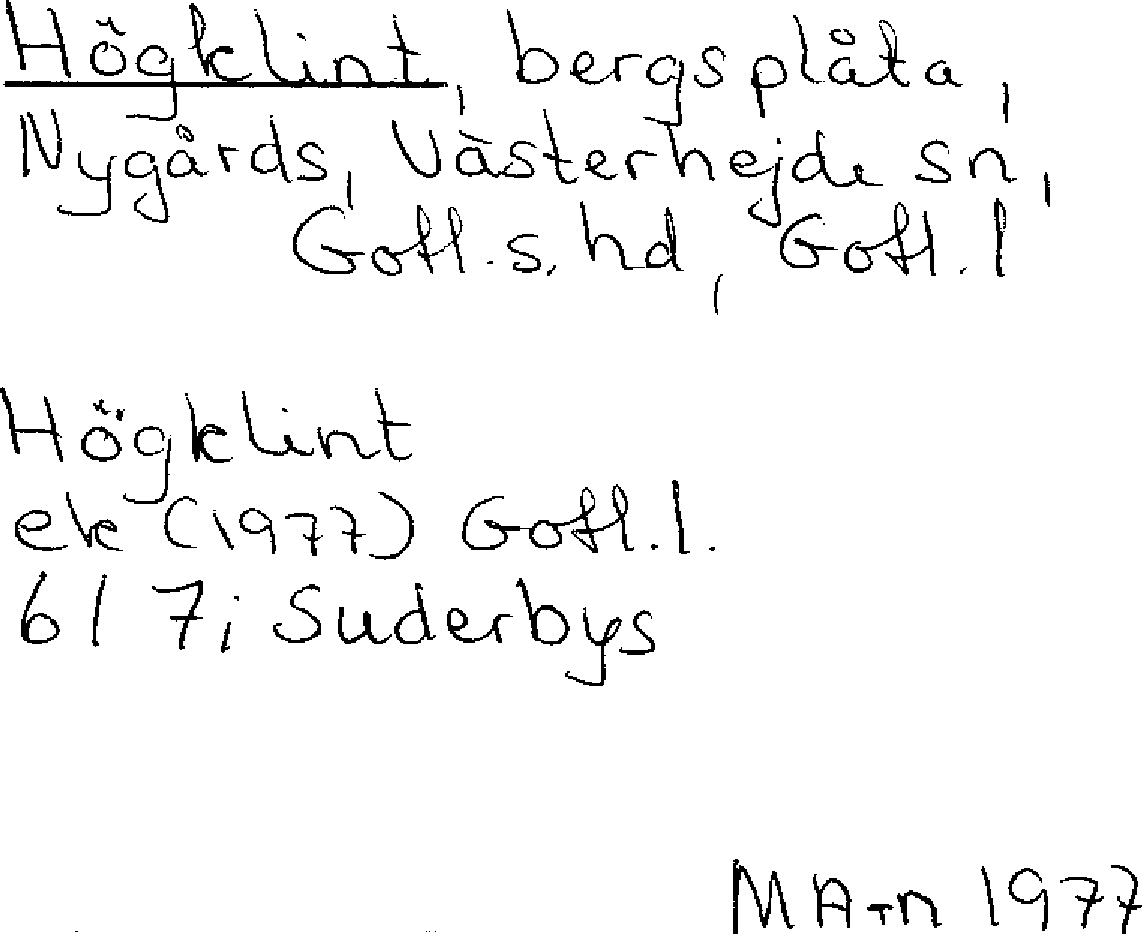 Högklint, bergsplåta,
Nygårds, Västerhejde sn,
Gotl. s. hd, Gotl. l
Högklint
ek (1977) Gotl. l.
6I 7i Suderbys
MA-n 1977